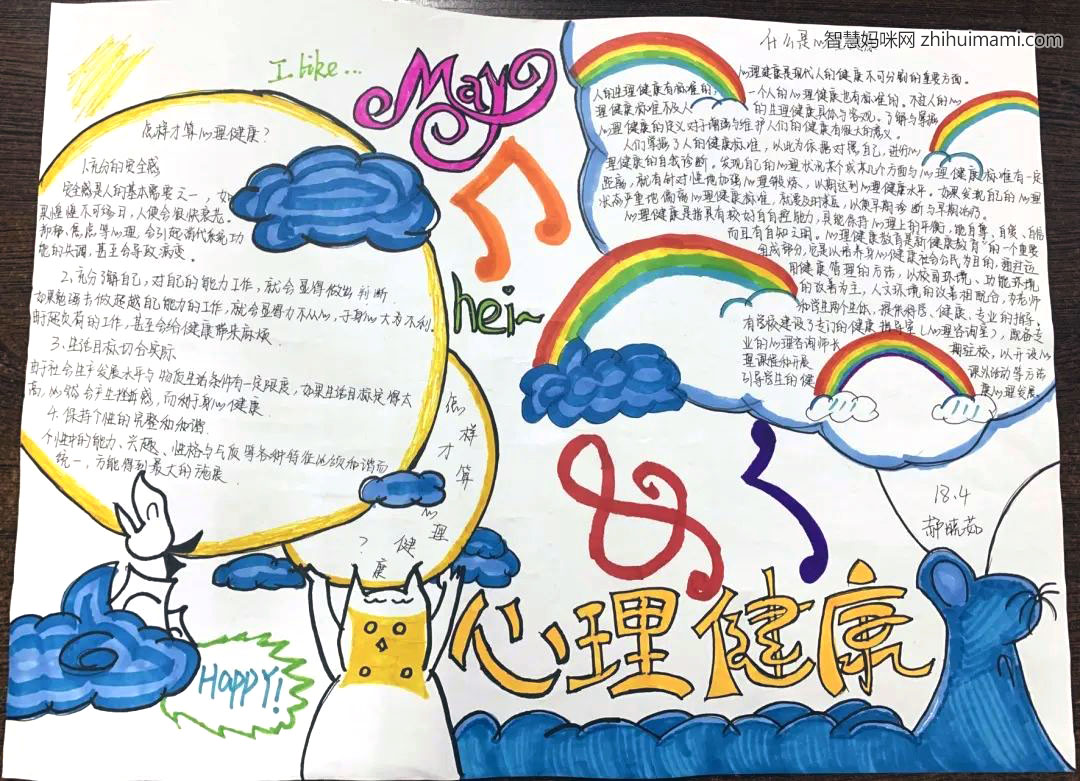 智慧妈咪网 zhihuimami.com
I like...
May
hei~
怎样才算心理健康?
1.充分的安全感
安全感是人的基本需要之一，如
果惶惶不可终日，人便会很快衰老。
抑郁、焦虑等心理，会引起消化系统功
能的失调，甚至会导致病变。
2.充分了解自己，对自己的能力工作，就会显得做出判断
如果勉强去做超越自己能力的工作，就会显得力不从心，于身心大为不利.
时超负荷的工作，甚至会给健康带来麻烦.
3.生活目标切合实际
由于社会生产发展水平与物质生活条件有一定限度，如果生活目标定得太
高，必然会产生挫折感，而不利于身心健康.
4.保持个性的完整和和谐
个性中的能力、兴趣、性格与气质等各种特征必须和谐而
统一，方能得到最大的施展.
怎样才算心理健康?
什么是心
心理健康是现代人的健康不可分割的重要方面。
人的生理健康有标准的，一个人的心理健康也有标准的。不过人的心
理健康标准不及人的生理健康具体与客观。了解与掌握
心理健康的定义对于增强与维护人们的健康有很大的意义。
人们掌握了人的健康标准，以此为依据对照自己，进行心
理健康的自我诊断。发现自己的心理状况某个或某几个方面与心理健康标准有一定
距离，就有针对性地加强心理锻炼，以期达到心理健康水平。如果发现自己的心理
状态严重地偏离心理健康标准，就要及时求医，以便早期诊断与早期治疗。
心理健康是指具有较好自自控能力，且能保持心理上的平衡，能自尊、自爱、自信
而且有自知之明。心理健康教育是新健康教育的一个重要
组成部分，它是以培养身心健康社会公民为目的，通过运
用健康管理的方法，以校园环境、功能环境
的改善为主，人文环境的改善相配合，为老师
和学生两个主体，提供科普、健康、专业的指导。
有学校建设了专门的健康指导室(心理咨询室)，配备专
业的心理咨询师长期驻校，以开设心
理课程和开展课外活动等方法
引导学生的健康心理发展。
18.4
郝晓茹
HAPPY!
心理健康